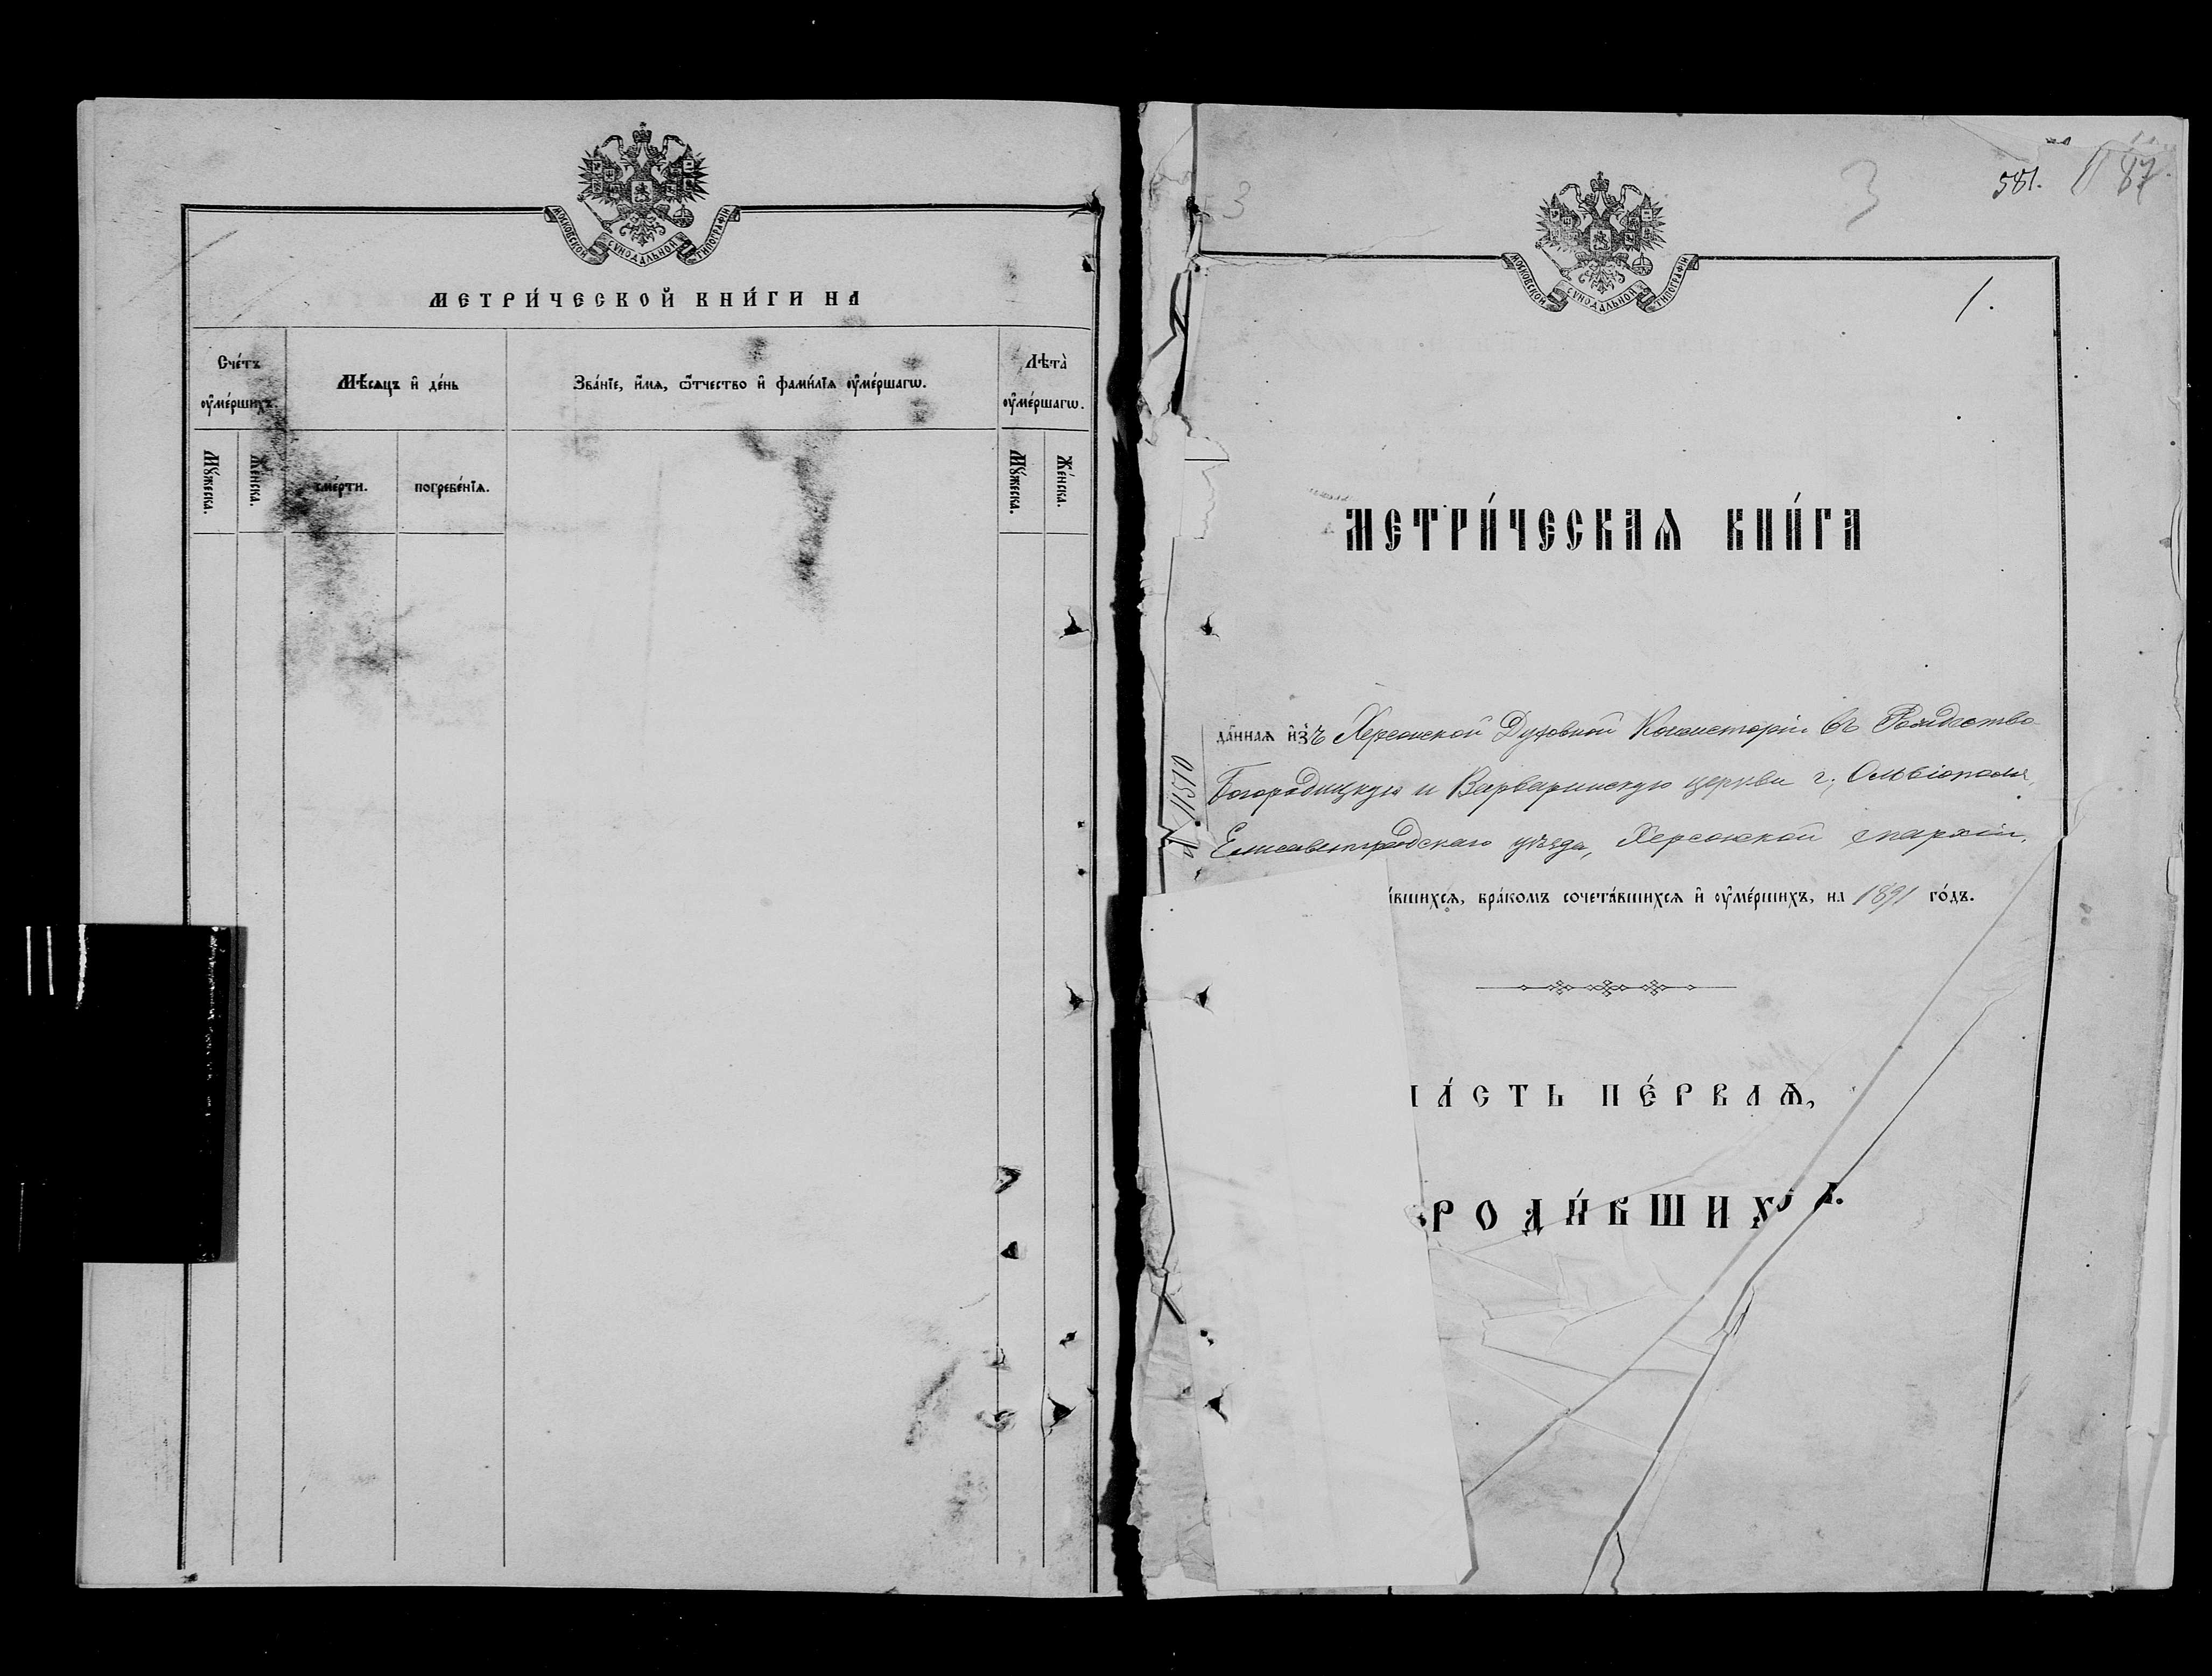 МОСКОВСКОЙ СУНОДАЛЬНОЙ ТИПОГРАФІИ
МЕТРИ́ЧЕСКОЙ КНИ́ГИ НА
Сче́тъ ᲂу҆ме́ршихъ.
Мѣ́сяцъ и҆ де́нь
Зва́нїе, и҆́мѧ, ѻ҆́тчество и҆ фамѝлїѧ ᲂу҆ме́ршагѡ.
Лѣта̀ ᲂу҆ме́ршагѡ.
Мꙋ́жеска.
Же́нска.
сме́рти.
погребе́нїѧ.
Мꙋ́жеска.
Же́нска.
3
3
581.
87.
МОСКОВСКОЙ СУНОДАЛЬНОЙ ТИПОГРАФІИ
1.
МЕТРИ́ЧЕСКАѦ КНИ́ГА
да́ннаѧ и҆зъ Херсонской Духовной Консисторіи въ Рождество-
Богородицкую и Варваринскую церкви г. Ольвіополя,
Елисаветградскаго уѣзда, Херсонской епархіи.
и́вшихсѧ, бра́комъ сочета́вшихсѧ и҆ ᲂу҆ме́ршихъ, на 1891 го́дъ.
А́СТЬ ПЕ́РВАѦ,
РОДИ́ВШИХ